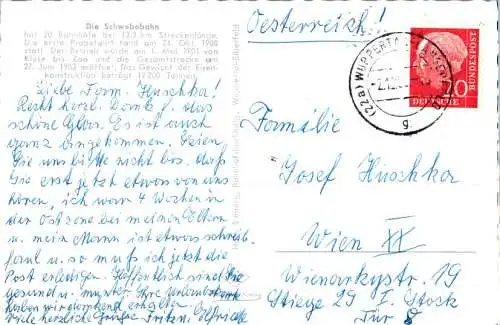 Die Schwebebahn
hat 20 Bahnhöfe bei 13,3 km Streckenlänge.
Die erste Probefahrt fand am 24. Okt. 1900
statt. Der Betrieb wurde am 1. Mai 1901 von
Kluse bis Zoo und die Gesamtstrecke am
27. Juni 1903 eröffnet. Das Gewicht der Eisen-
konstruktion beträgt 19200 Tonnen.
Liebe Fam. Huschka!
Recht herzl. Dank f. das
schöne Glas. Es ist auch
ganz angekommen. Seien
Sie uns bitte nicht bös, daß
Sie erst jetzt etwas von uns
hören, ich war 4 Wochen in
der Ostzone bei meinen Eltern
u. mein Mann ist etwas schreib-
faul u. so muß ich jetzt die
Post erledigen. Hoffentlich sind Sie
gesund u. munter. Ihre Urlaubskarte
haben wir dankend erhalten.
viele herzliche Grüße
Oesterreich!
(22a) WUPPERTAL
g
DEUTSCHE BUNDESPOST
20
Familie
Josef Huschka
Wien XX
Wienarkystr. 19
Stiege 29 I. Stock
Tür 8